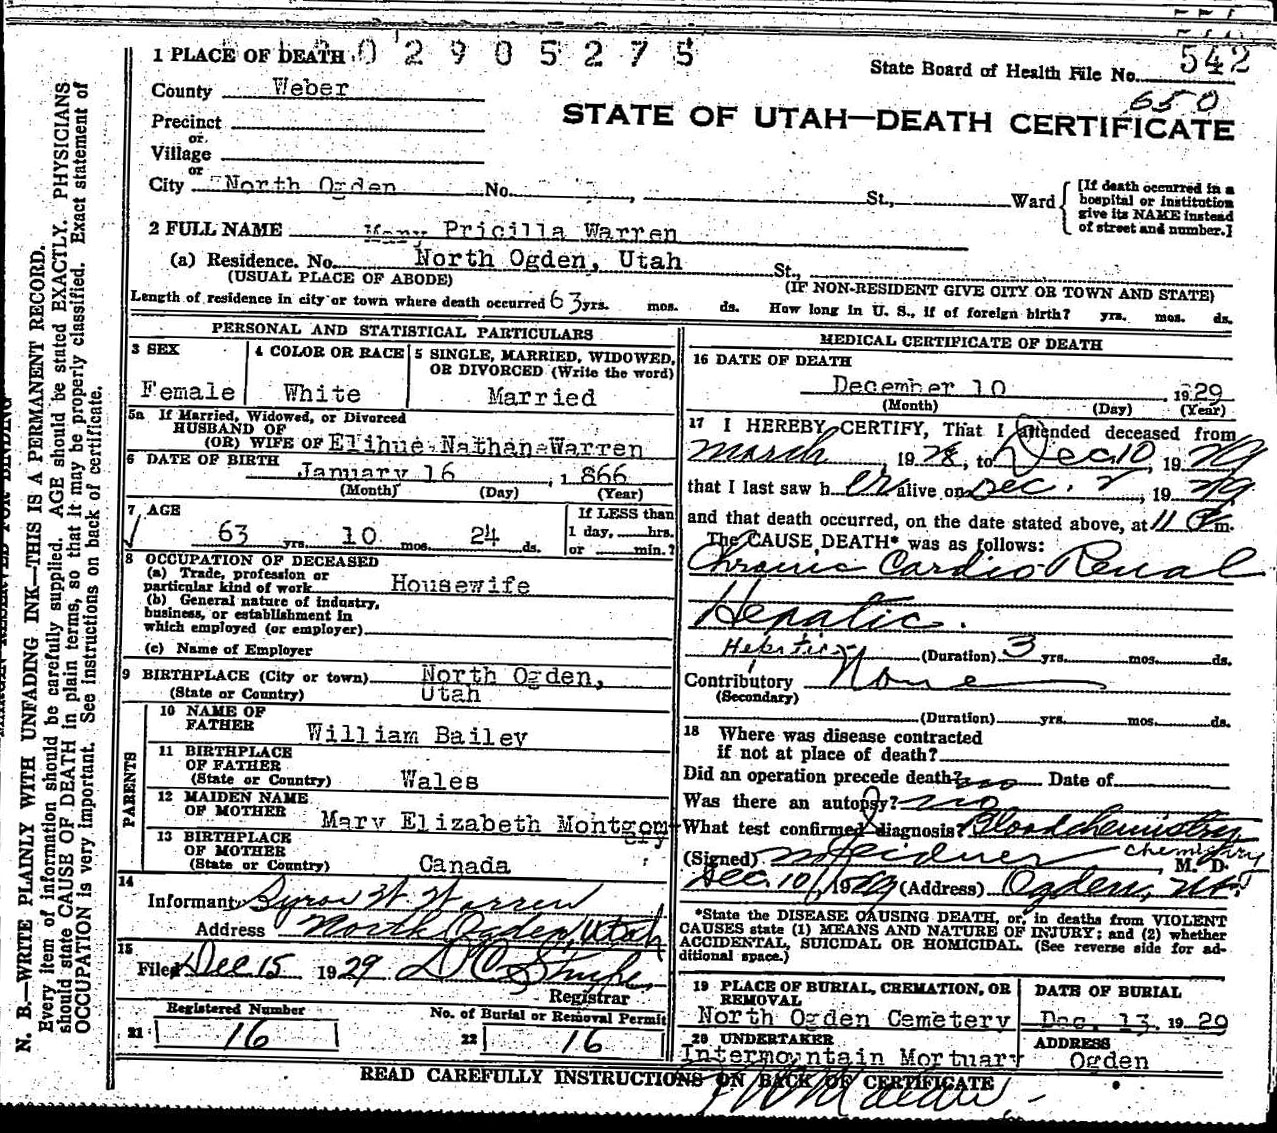 1 PLACE OF DEATH 0 2 9 0 5 2 7 5
State Board of Health File No. 542
650
County Weber
STATE OF UTAH—DEATH CERTIFICATE
Precinct
or
Village
or
City North Ogden No. , St., Ward
[If death occurred in a
hospital or institution
give its NAME instead
of street and number.]
2 FULL NAME Mary Pricilla Warren
(a) Residence. No. North Ogden, Utah St.,
(USUAL PLACE OF ABODE) (IF NON-RESIDENT GIVE CITY OR TOWN AND STATE)
Length of residence in city or town where death occurred 63 yrs. mos. ds. How long in U. S., if of foreign birth? yrs. mos. ds.
PERSONAL AND STATISTICAL PARTICULARS
3 SEX
Female
4 COLOR OR RACE
White
5 SINGLE, MARRIED, WIDOWED,
OR DIVORCED (Write the word)
Married
5a If Married, Widowed, or Divorced
HUSBAND OF
(OR) WIFE OF Elihue Nathan Warren
6 DATE OF BIRTH
January 16, 1866
(Month) (Day) (Year)
7 AGE
63 yrs. 10 mos. 24 ds.
If LESS than
1 day, hrs.
or min.?
8 OCCUPATION OF DECEASED
(a) Trade, profession or
particular kind of work Housewife
(b) General nature of industry,
business, or establishment in
which employed (or employer)
(c) Name of Employer
9 BIRTHPLACE (City or town) North Ogden,
(State or Country) Utah
PARENTS
10 NAME OF
FATHER William Bailey
11 BIRTHPLACE
OF FATHER
(State or Country) Wales
12 MAIDEN NAME
OF MOTHER Mary Elizabeth Montgom-
gry
13 BIRTHPLACE
OF MOTHER
(State or Country) Canada
14
Informant Byron W. Warren
Address North Ogden, Utah
15
Filed Dec 15 1929 D C Shupe
Registrar
21 Registered Number
16
22 No. of Burial or Removal Permit
16
MEDICAL CERTIFICATE OF DEATH
16 DATE OF DEATH
December 10 1929
(Month) (Day) (Year)
17 I HEREBY CERTIFY, That I attended deceased from
March, 1928, to Dec 10, 1929
that I last saw h er alive on Dec. , 1929
and that death occurred, on the date stated above, at 11 P m.
The CAUSE DEATH* was as follows:
Chronic Cardio-Renal
Hepatic.
(Duration) 3 yrs. mos. ds.
Contributory None
(Secondary)
(Duration) yrs. mos. ds.
18 Where was disease contracted
if not at place of death?
Did an operation precede death? no Date of
Was there an autopsy? no
What test confirmed diagnosis? Blood chemistry
chemistry
(Signed) M. D.
Dec. 10, 1929 (Address) Ogden, Ut.
*State the DISEASE CAUSING DEATH, or, in deaths from VIOLENT
CAUSES state (1) MEANS AND NATURE OF INJURY; and (2) whether
ACCIDENTAL, SUICIDAL OR HOMICIDAL. (See reverse side for ad-
ditional space.)
19 PLACE OF BURIAL, CREMATION, OR
REMOVAL
North Ogden Cemetery
DATE OF BURIAL
Dec. 13, 1929
20 UNDERTAKER
Intermountain Mortuary
ADDRESS
Ogden
READ CAREFULLY INSTRUCTIONS ON BACK OF CERTIFICATE
N. B.—WRITE PLAINLY WITH UNFADING INK—THIS IS A PERMANENT RECORD.
Every item of information should be carefully supplied. AGE should be stated EXACTLY. PHYSICIANS
should state CAUSE OF DEATH in plain terms, so that it may be properly classified. Exact statement of
OCCUPATION is very important. See instructions on back of certificate.